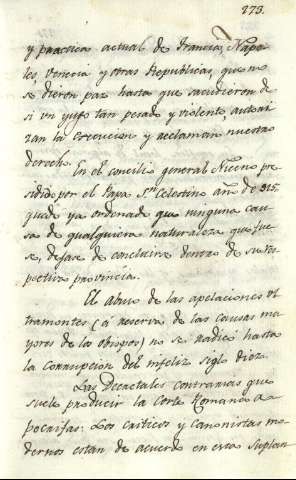 273.
y practica actual de Francia, Napo-
les, Venecia y otras Republicas, que no
se dieron paz hasta que sacudieron de
si un yugo tan pesado y violento autori
zan la execucion y aclaman nuestro
derecho.
En el concilio general Niceno pre
sidido por el Papa Sn. Celestino año de 325
quedó ya ordenado que ninguna cau
sa de qualquiera naturaleza que fue
se, dejase de concluirse dentro de su res
pectiva provincia.
El abuso de las apelaciones ul
tramontes (á reserva de las causas ma
yores de los obispos) no se radicó hasta
la corrupcion del infeliz siglo diez.
Las Decretales contrarias que
suele producir la Corte Romana
apocrifas: Los criticos y canonistas mo
dernos estan de acuerdo en esta